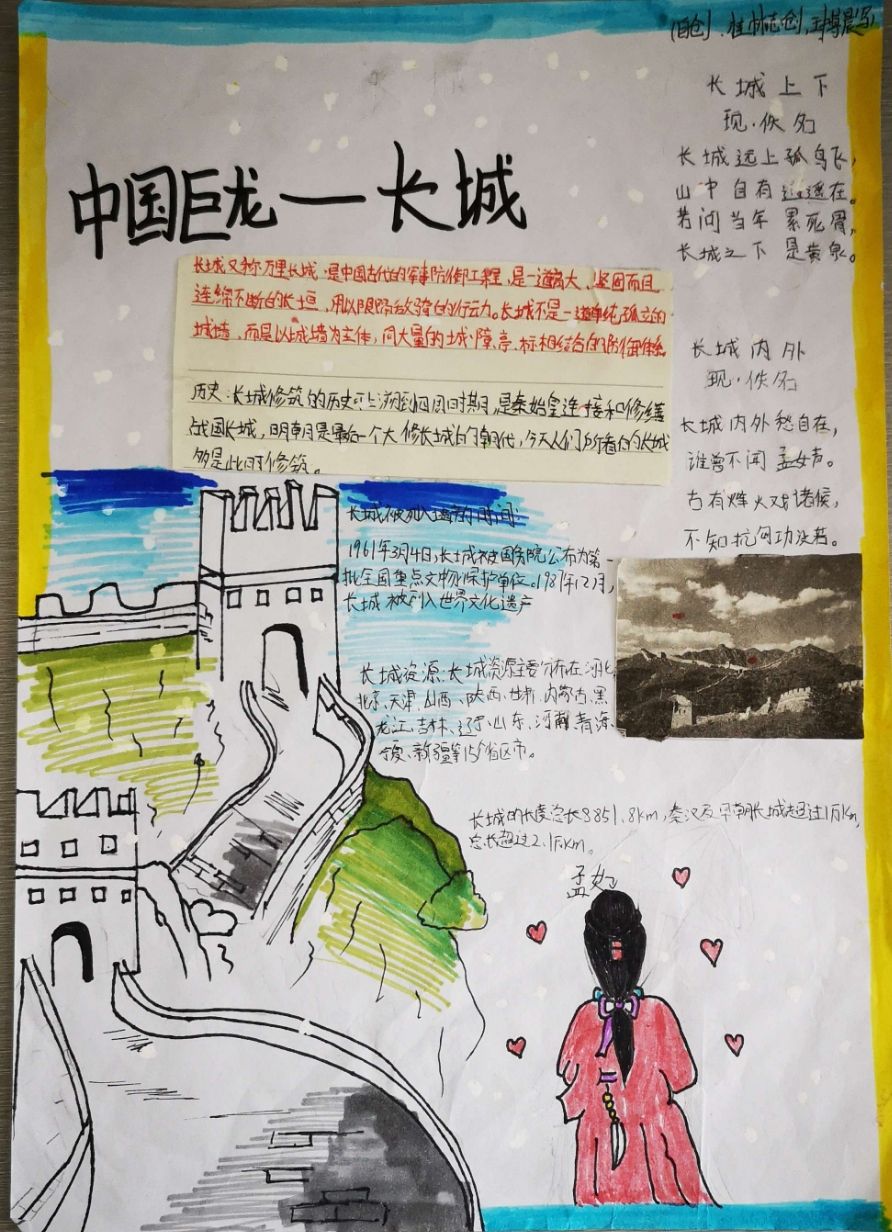 (自创、桂林志创,王博晨写)
长城上下
现·佚名
长城远上孤鸟飞,
山中自有逍遥在。
若问当年累死骨,
长城之下是黄泉。
中国巨龙一长城
长城又称万里长城,是中国古代的军事防御工程,是一道高大、坚固而且
连绵不断的长垣,用以限隔敌骑的行动。长城不是一道单纯孤立的
城墙,而是以城墙为主体,同大量的城、障、亭、标相结合的防御体系
历史:长城修筑的历史可上溯到西周时期,是秦始皇连接和修缮
战国长城,明朝是最后一个大修长城的朝代,今天人们所看的长城
多是此时修筑。
长城内外
现·佚名
长城内外愁自在,
谁曾不闻孟女声。
古有烽火戏诸侯,
不知抗匈功没若。
长城被列入遗产的时间:
1961年3月4日,长城被国务院公布为第一
批全国重点文物保护单位。1987年12月,
长城被列入世界文化遗产
长城资源:长城资源主要分布在河北、
北京、天津、山西、陕西、甘肃、内蒙古、黑
龙江、吉林、辽宁、山东、河南、青海、
宁夏、新疆等15个省区市。
长城的长度总长8851.8km,秦汉及早期长城超过1万km,
总长超过2.1万km。
孟女